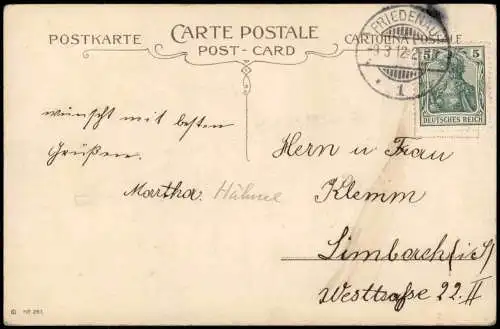 CARTE POSTALE
POSTKARTE
POST-CARD
CARTOLINA POSTALE
FRIEDENAU
-9.3.12.
1
5 5
DEUTSCHES REICH
wünscht mit besten
Grüßen.
Martha. Hähnel
Herrn u Frau
Klemm
Limbach (i/S)
Weststraße 22. II